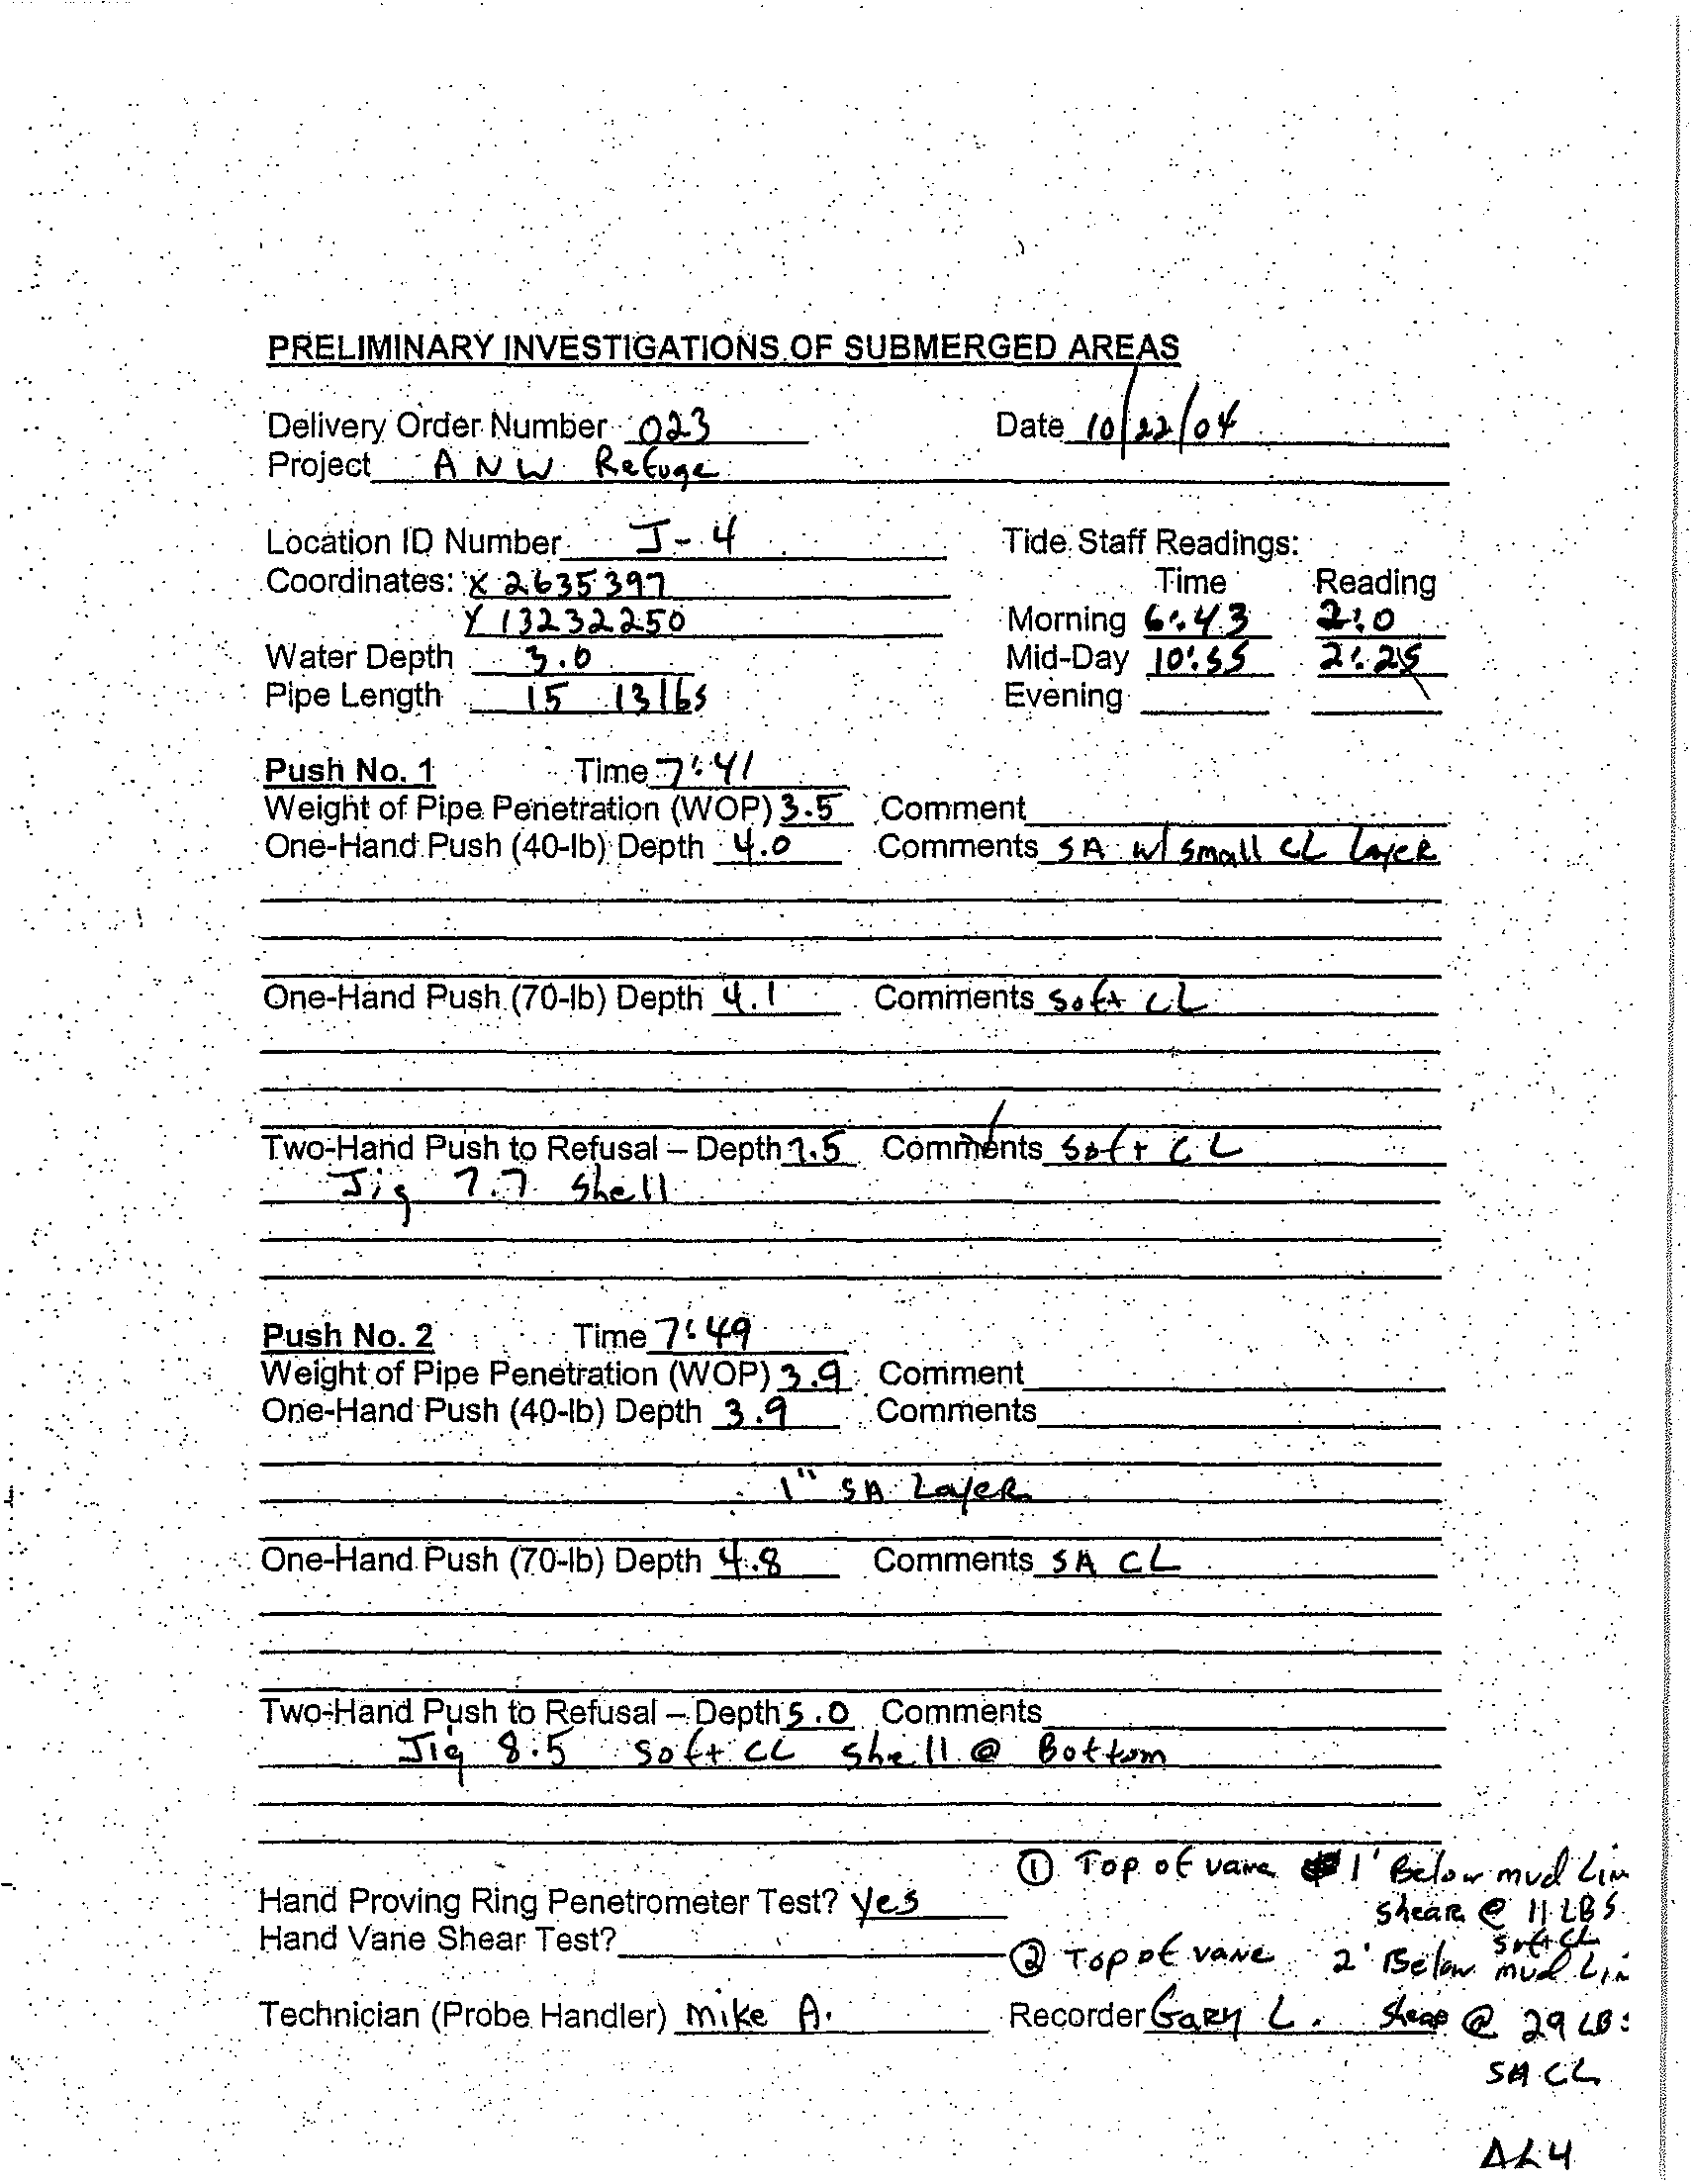 PRELIMINARY INVESTIGATIONS OF SUBMERGED AREAS
Delivery Order Number 023 Date 10/22/04
Project ANW Refuge
Location ID Number J-4 Tide Staff Readings:
Coordinates: X 2635397 Time Reading
Y 13232250 Morning 6:43 2.0
Water Depth 3.0 Mid-Day 10:55 2.25
Pipe Length 15 13 lbs Evening
Push No. 1 Time 7:41
Weight of Pipe Penetration (WOP) 3.5 Comment
One-Hand Push (40-lb) Depth 4.0 Comments SA w/ small CL Layer
One-Hand Push (70-lb) Depth 4.1 Comments Soft CL
Two-Hand Push to Refusal – Depth 7.5 Comments Soft CL
Jig 7.7 Shell
Push No. 2 Time 7:49
Weight of Pipe Penetration (WOP) 3.9 Comment
One-Hand Push (40-lb) Depth 3.9 Comments
1" SA Layer
One-Hand Push (70-lb) Depth 4.8 Comments SA CL
Two-Hand Push to Refusal – Depth 5.0 Comments
Jig 8.5 Soft CL Shell @ Bottom
① Top of vane 1' Below mud Lin
Hand Proving Ring Penetrometer Test? yes Shear @ 11 LBS
Hand Vane Shear Test? Soft CL
② Top of vane 2' Below mud Lin
Technician (Probe Handler) Mike A. Recorder Gary L. Shear @ 29 LBS
SA CL